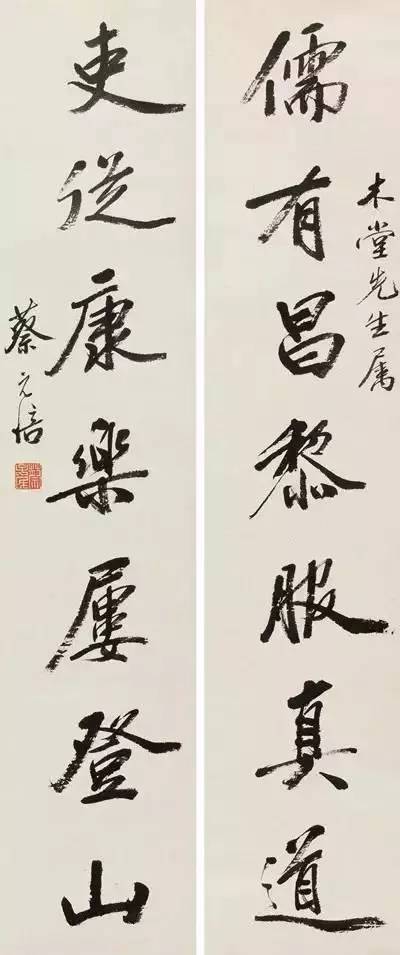 木堂先生属
儒有昌黎服真道
吏從康樂屢登山
蔡元培